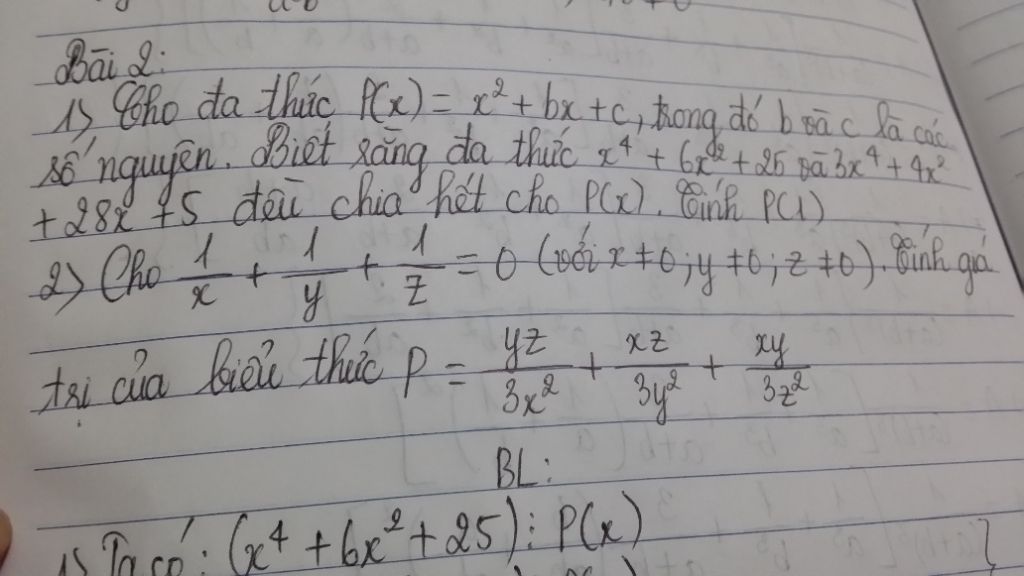 Bài 2:
1) Cho đa thức P(x) = x² + bx + c, trong đó b và c là các
số nguyên. Biết rằng đa thức x⁴ + 6x² + 25 và 3x⁴ + 4x²
+ 28x + 5 đều chia hết cho P(x). Tính P(1)
2) Cho 1/x + 1/y + 1/z = 0 (với x ≠ 0; y ≠ 0; z ≠ 0). Tính giá
trị của biểu thức P = yz/3x² + xz/3y² + xy/3z²
BL:
1) Ta có: (x⁴ + 6x² + 25) ⋮ P(x)